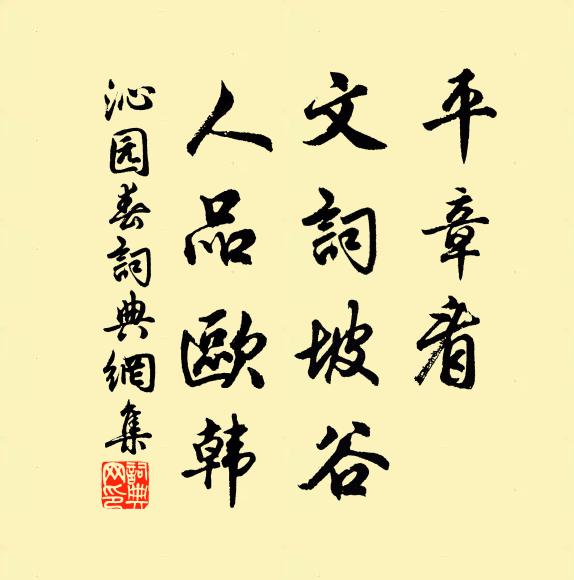 平章者
文詞坡谷
人品歐韩
沁园春詞典網集
詞典网印